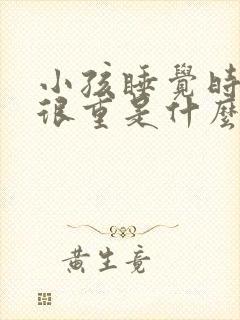 小孩睡覺時
很重是什麼
黃生竟